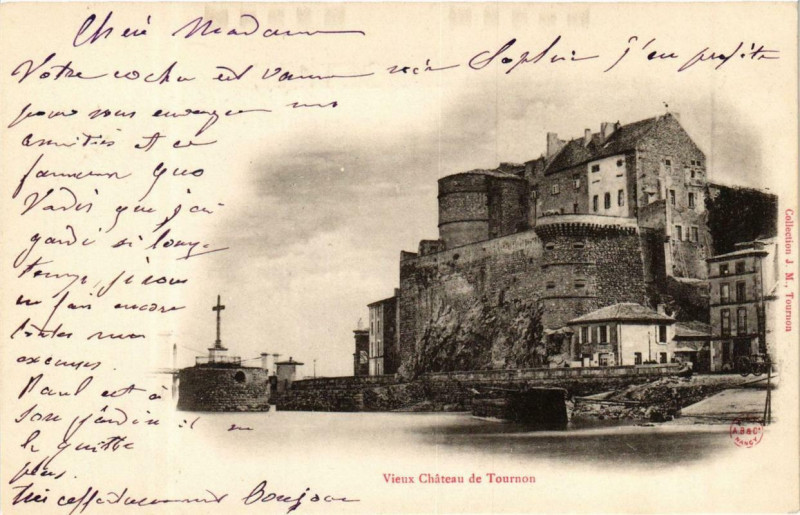 Chère Madame
Votre cocher est venu voir Sophie j'en profite
pour vous envoyer
amitiés et ce
fameux Quo
Vadis que j'ai
gardé si long-
temps, je vous
en fais encore
toutes mes
excuses.
Paul est à
son jardin il
le quitte
plus.
affectueusement Bonjour
Vieux Château de Tournon
Collection J. M., Tournon
A.B&C
NANCY